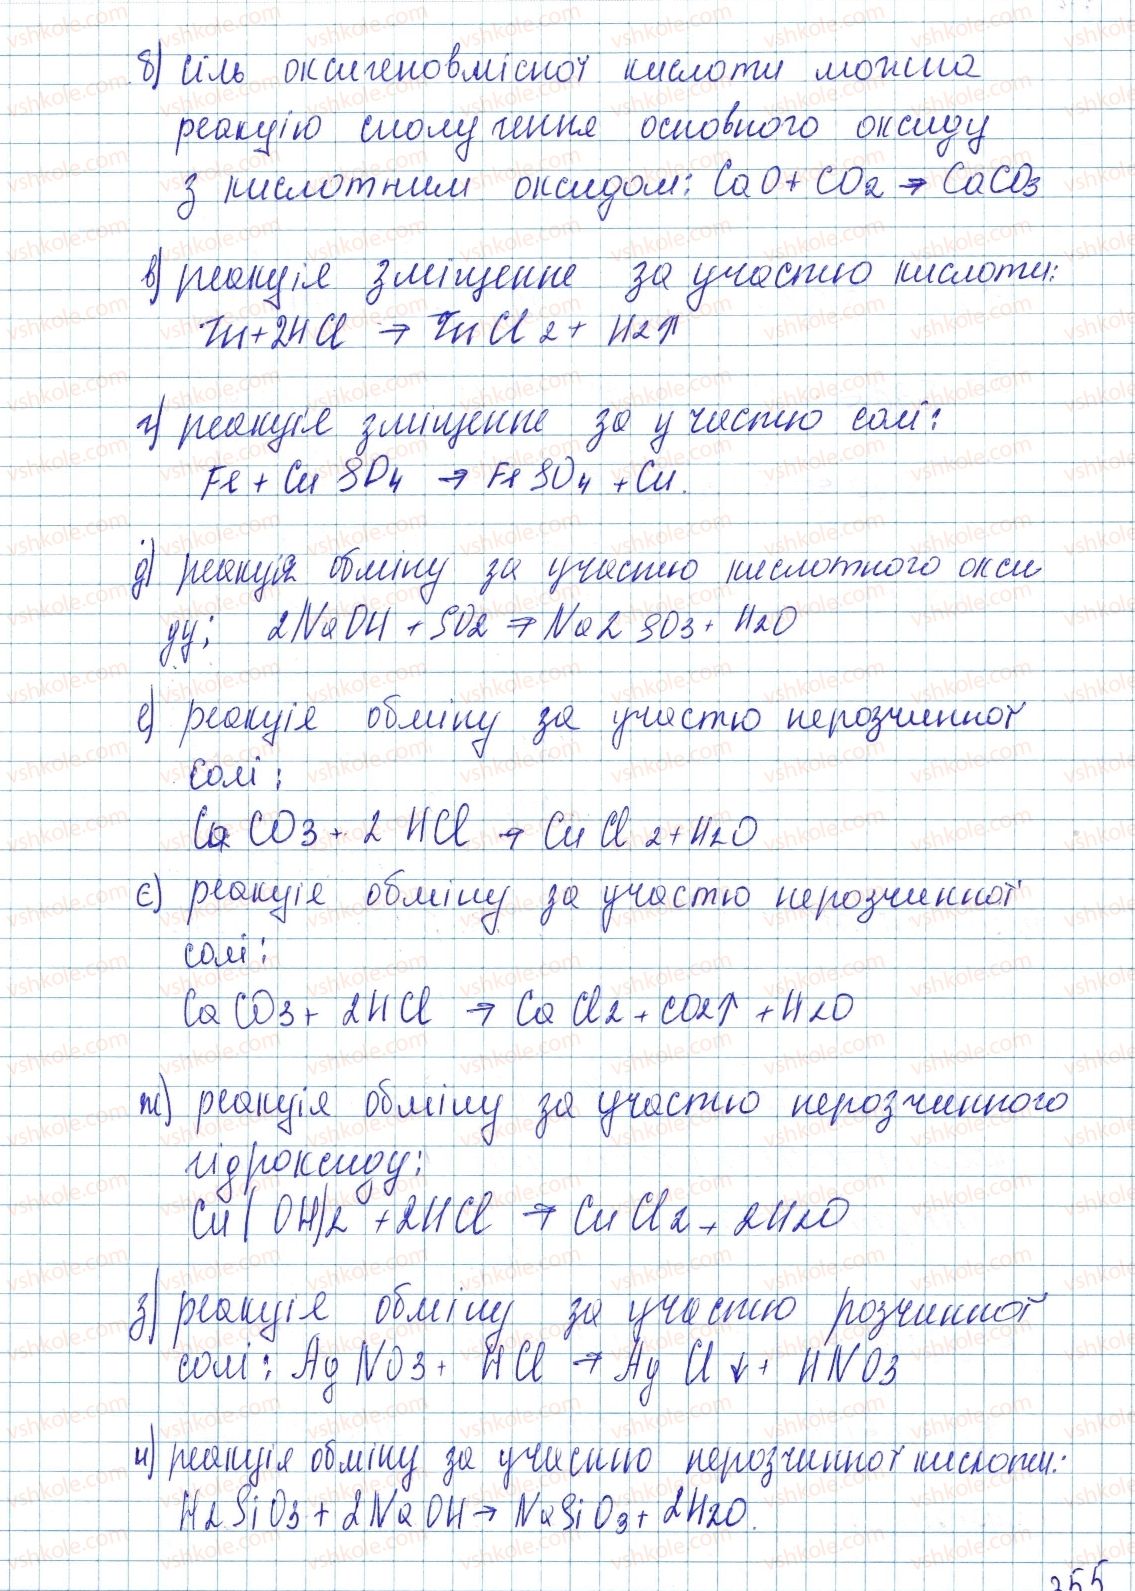 б) сіль оксигеновмісної кислоти можна
реакцію сполучення основного оксиду
з кислотним оксидом: CaO + CO2 → CaCO3
в) реакція зміщення за участю кислоти:
Zn + 2HCl → ZnCl2 + H2↑
г) реакція зміщення за участю солі:
Fe + CuSO4 → FeSO4 + Cu.
д) реакція обміну за участю кислотного окси
ду; 2NaOH + SO2 → Na2SO3 + H2O
е) реакція обміну за участю нерозчинної
солі:
CaCO3 + 2HCl → CuCl2 + H2O
є) реакція обміну за участю нерозчинної
солі:
CaCO3 + 2HCl → CaCl2 + CO2↑ + H2O
ж) реакція обміну за участю нерозчинного
гідроксиду:
Cu(OH)2 + 2HCl → CuCl2 + 2H2O
з) реакція обміну за участю розчинної
солі: AgNO3 + HCl → AgCl↓ + HNO3
и) реакція обміну за участю нерозчинної кислоти:
H2SiO3 + 2NaOH → NaSiO3 + 2H2O.
355